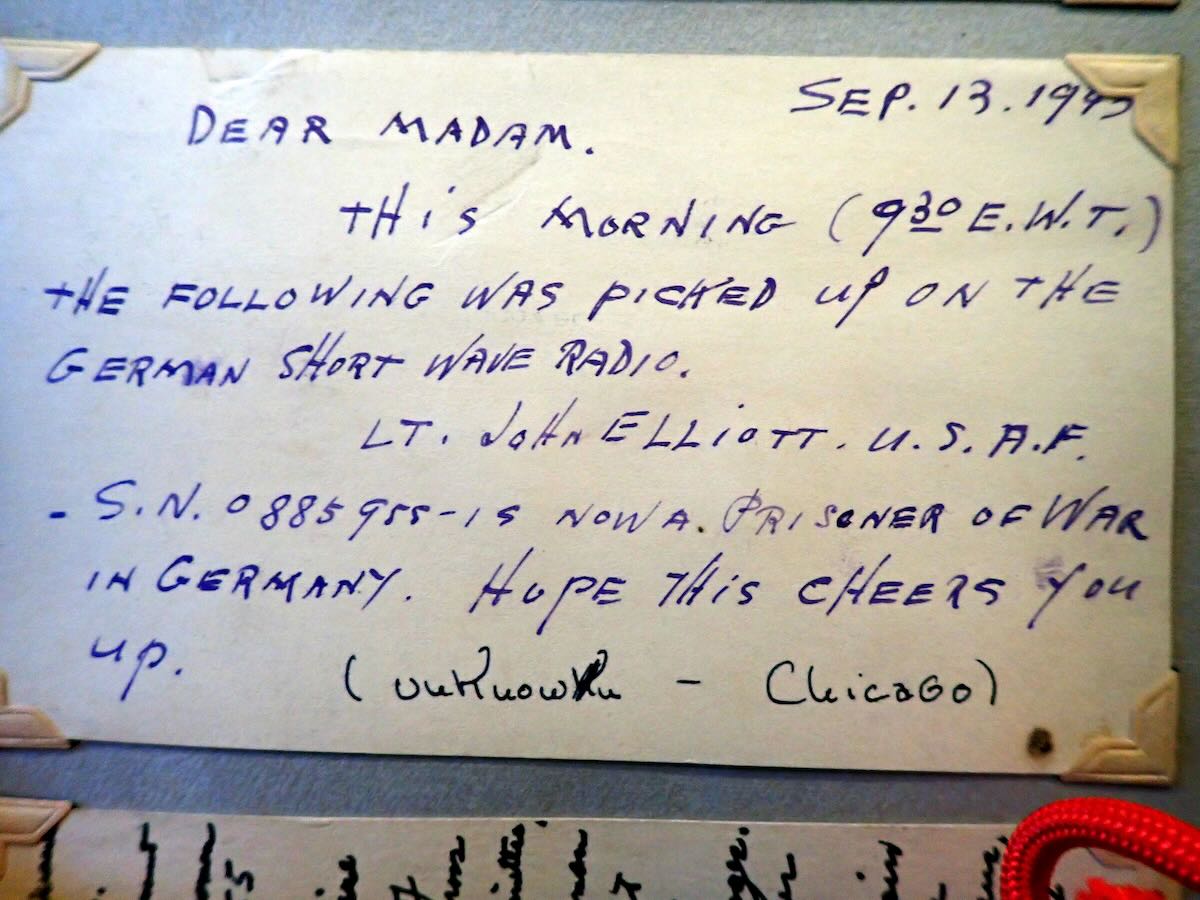 SEP. 13. 1943
DEAR MADAM.
THIS MORNING (930 E.W.T.)
THE FOLLOWING WAS PICKED UP ON THE
GERMAN SHORT WAVE RADIO.
LT. JOHN ELLIOTT. U.S.A.F.
- S.N. 0885955-IS NOW A. PRISONER OF WAR
IN GERMANY. HOPE THIS CHEERS YOU
UP.
(unknown - Chicago)